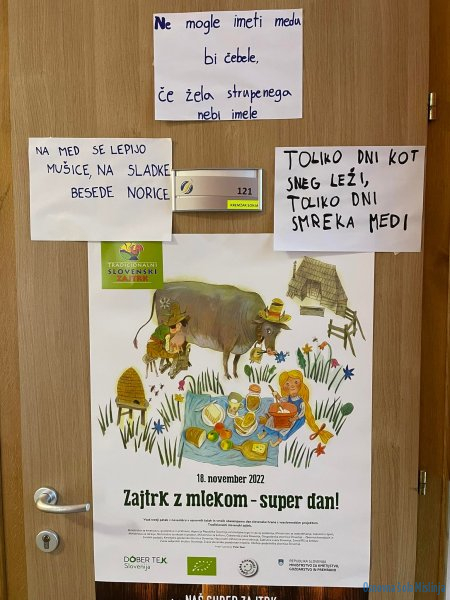 Ne mogle imeti medu
bi čebele,
če žela strupenega
nebi imele
NA MED SE LEPIJO
MUŠICE, NA SLADKE
BESEDE NORICE
121
TOLIKO DNI KOT
SNEG LEŽI,
TOLIKO DNI
SMREKA MEDI
TRADICIONALNI
SLOVENSKI
ZAJTRK
18. november 2022
Zajtrk z mlekom - super dan!
DOBER TEK
Slovenija
REPUBLIKA SLOVENIJA
MINISTRSTVO ZA KMETIJSTVO,
GOZDARSTVO IN PREHRANO
NAŠ SUPER ZAJTRK